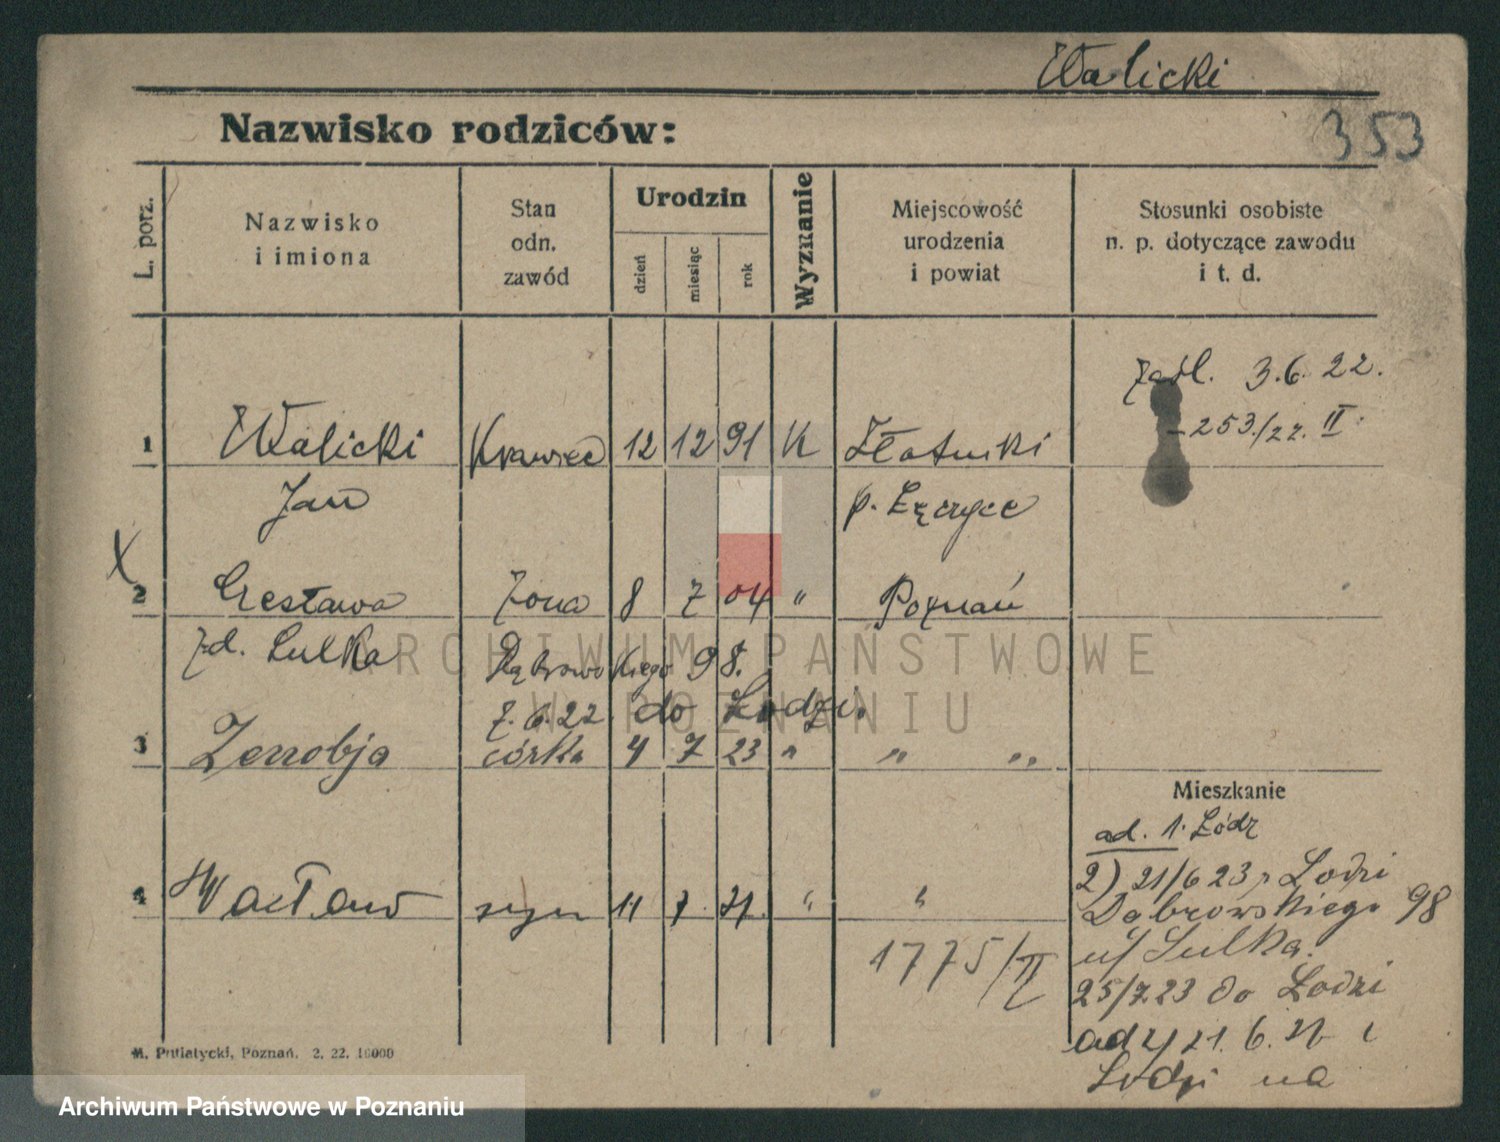 Walicki
353
Nazwisko rodziców:
L. porz.
Nazwisko i imiona
Stan odn. zawód
Urodzin
dzień
miesiąc
rok
Wyznanie
Miejscowość urodzenia i powiat
Stosunki osobiste n. p. dotyczące zawodu i t. d.
3.6.22.
253./22. II
1 Walicki Krawiec 12 12 91 K Złotniki
Jan p. Łęczyce
X
2 Czesława Żona 8 7 04 " Poznań
zd. Lulka Dąbrowskiego 98.
7.6.22 do Łodzi.
3 Zenobja córka 4 7 23 " " "
Mieszkanie
ad. 1. Łódź
2) 21/6 23 z Łodzi
4 Wacław syn 11 7. " "
Dąbrowskiego 98
1775/II
u/ Lulka.
25/7.23 do Łodzi
ad 21. 6.
Łodzi na
M. Putiatycki, Poznań. 2. 22. 10000
ARCHIWUM PAŃSTWOWE
W POZNANIU
Archiwum Państwowe w Poznaniu